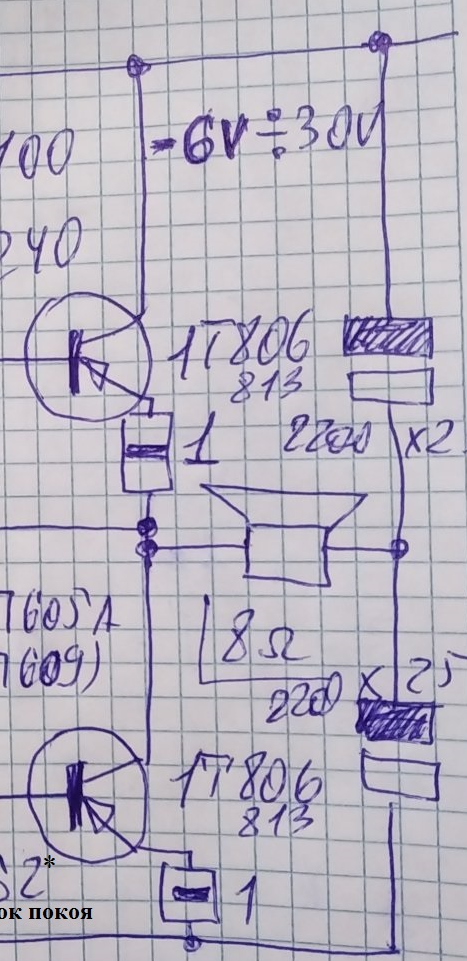 100
-6V÷30V
240
1T806
813
1
2200 x2
T605A
8Ω
1609)
2200 x 25
1T806
813
52*
ок покоя
1